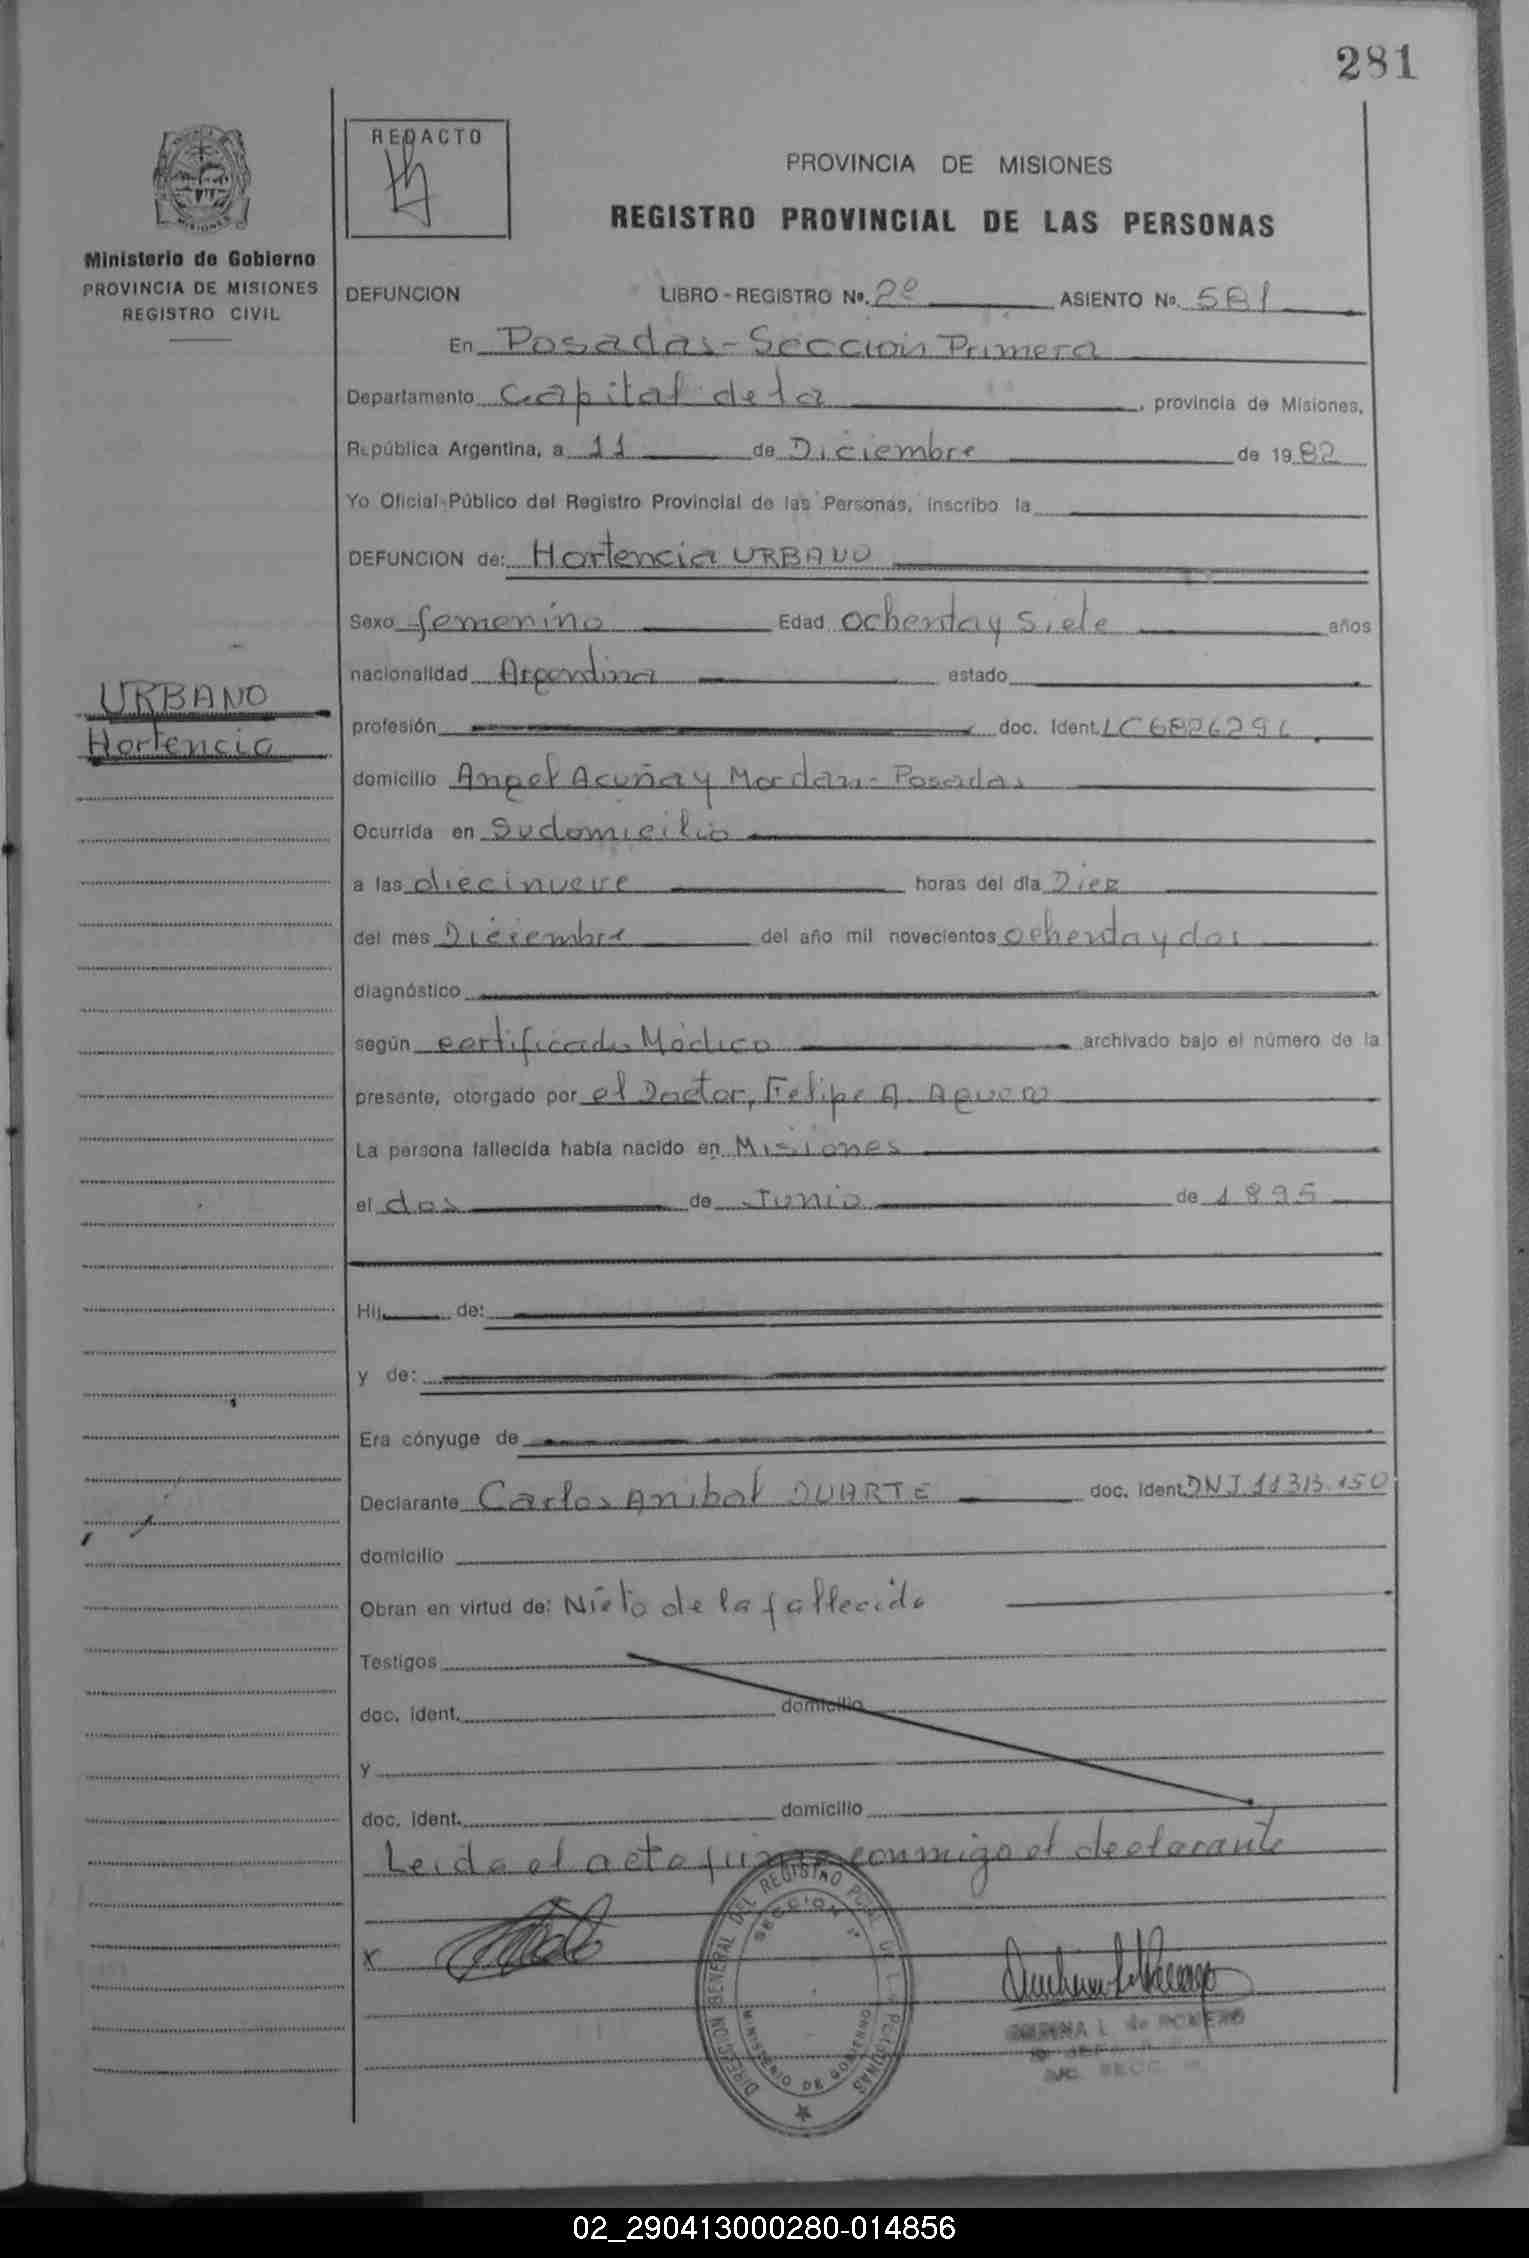 281
REDACTO
PROVINCIA DE MISIONES
REGISTRO PROVINCIAL DE LAS PERSONAS
MISIONES
Ministerio de Gobierno
PROVINCIA DE MISIONES
REGISTRO CIVIL
DEFUNCION LIBRO - REGISTRO Nº. 2º ASIENTO Nº. 581
En Posadas - Sección Primera
Departamento Capital de la , provincia de Misiones,
República Argentina, a 11 de Diciembre de 1982
Yo Oficial Público del Registro Provincial de las Personas, inscribo la
DEFUNCION de: Hortencia URBANO
Sexo femenino Edad Ochenta y Siete años
nacionalidad Argentina estado
URBANO
Hortencia
profesión doc. Ident. LC
domicilio Angel Acuña y - Posadas
Ocurrida en Su domicilio
a las diecinueve horas del día Diez
del mes Diciembre del año mil novecientos ochenta y dos
diagnóstico
según certificado Médico archivado bajo el número de la
presente, otorgado por el Doctor, Felipe A. Aguero
La persona fallecida había nacido en Misiones
el dos de Junio de 1895
Hij de:
y de:
Era cónyuge de
Declarante Carlos Anibal DUARTE doc. Ident. DNI
domicilio
Obran en virtud de: Nieto de la fallecida
Testigos
doc. ident. domicilio
y
doc. ident. domicilio
Leida el acta firma conmigo el declarante
X
DIRECCION GENERAL DEL REGISTRO PCIAL. DE LAS PERSONAS
SECCION 1ª
MINISTERIO DE GOBIERNO
L. de ROMERO
02_290413000280-014856